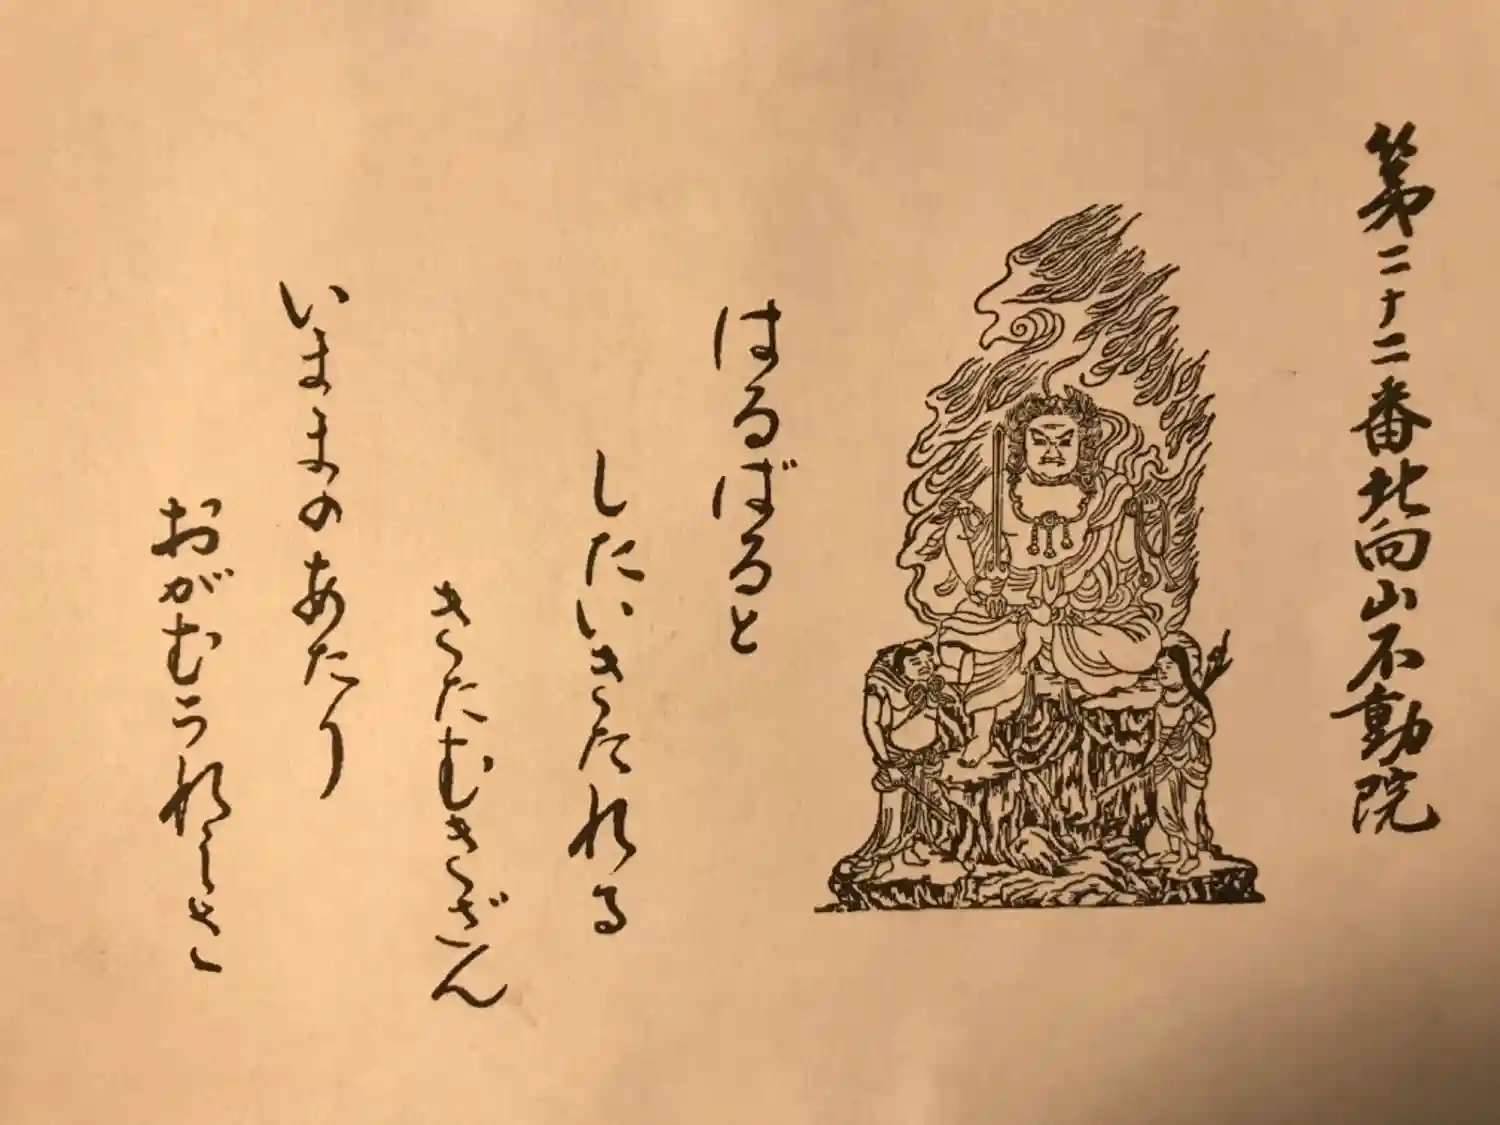 第二十二番北向山不動院
はるばると
したいきたれる
きたむきざん
いままのあたり
おがむうれしさ